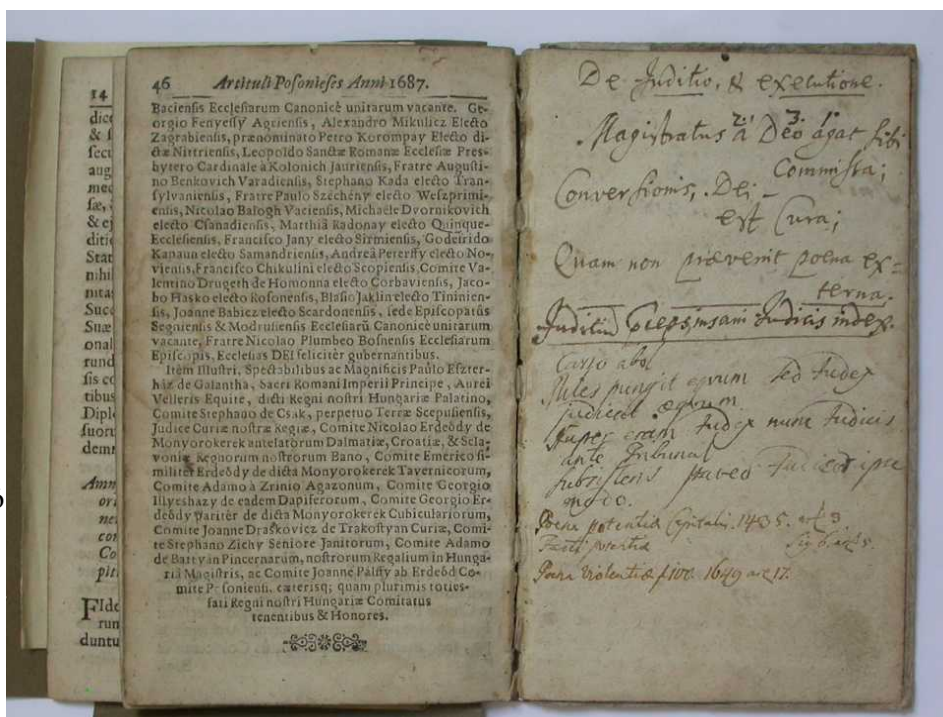 14
dice
& f
fecu
aug
mec
ſæ,
& ej
ditio
Stat
nihil
nitas
Succ
Suæ
onal
rund
ſis co
tibus
Dipl
ſuoru
demn
Amn
ori
ner
con
Co
piti
FIde
run
duntu
46 Articuli Poſonieſes Anni 1687.
Bacienſis Eccleſiarum Canonicè unitarum vacante. Ge-
orgio Fenyeſſy Agrienſis, Alexandro Mikulicz Electo
Zagrabienſis, prænominato Petro Korompay Electo di-
ctæ Nittrienſis, Leopoldo Sanctæ Romanæ Eccleſiæ Pres-
bytero Cardinale à Kolonich Jaurienſis, Fratre Auguſti-
no Benkovich Varadienſis, Stephano Kada electo Tran-
ſylvanienſis, Fratre Paulo Szécheny electo Weſzprimi-
enſis, Nicolao Balogh Vacienſis, Michaële Dvornikovich
electo Cſanadienſis, Matthiâ Radonay electo Quinque-
Eccleſienſis, Franciſco Jany electo Sirmienſis, Godefrido
Kapaun electo Samandrienſis, Andreâ Peterffy electo No-
vienſis, Franciſco Chikulini electo Scopienſis, Comite Va-
lentino Drugeth de Homonna electo Corbavienſis, Jaco-
bo Hasko electo Roſonenſis, Blaſio Jaklin electo Tininien-
ſis, Joanne Babicz electo Scardonenſis, ſede Epiſcopatûs
Segnienſis & Modruſienſis Eccleſiarū Canonicè unitarum
vacante, Fratre Nicolao Plumbeo Boſnenſis Eccleſiarum
Epiſcopis, Eccleſias DEI feliciter gubernantibus.
Item Illuſtri, Spectabilibus ac Magnificis Paulo Eſzter-
ház de Galantha, Sacri Romani Imperii Principe, Aurei
Velleris Equite, dicti Regni noſtri Hungariæ Palatino,
Comite Stephano de Csak, perpetuo Terræ Scepuſienſis,
Judice Curiæ noſtræ Regiæ, Comite Nicolao Erdeödy de
Monyorokerek antelatorum Dalmatiæ, Croatiæ, & Scla-
voniæ Regnorum noſtrorum Bano, Comite Emerico ſi-
militer Erdeödy de dicta Monyorokerek Tavernicorum,
Comite Adamo à Zrinio Agazonum, Comite Georgio
Illyeshazy de eadem Dapiferorum, Comite Georgio Er-
deödy pariter de dicta Monyorokerek Cubiculariorum,
Comite Joanne Draſkovicz de Trakoſtyan Curiæ, Comi-
te Stephano Zichy Seniore Janitorum, Comite Adamo
de Battyan Pincernarum, noſtrorum Regalium in Hunga-
riâ Magiſtris, ac Comite Joanne Pálffy ab Erdeöd Co-
mite Poſonienſi, cæterisq; quam plurimis toties-
fati Regni noſtri Hungariæ Comitatus
tenentibus & Honores.
De Juditio, & exeluti​one.
2. 3. 1.
Magiſtratus à Deo agat ſibi
Commiſſa;
Converſionis, Dei -
eſt Cura;
Quam non prævenit poena ex=
terna.
Judicis index.
Miles pungit sed Judex
Judex nunc Judicis
ante Tribunal
ſubſiſtens paveo
modo.
Poena potentiæ Capitalis. 1435. art 3
Poena violentiæ 1649 art 17.